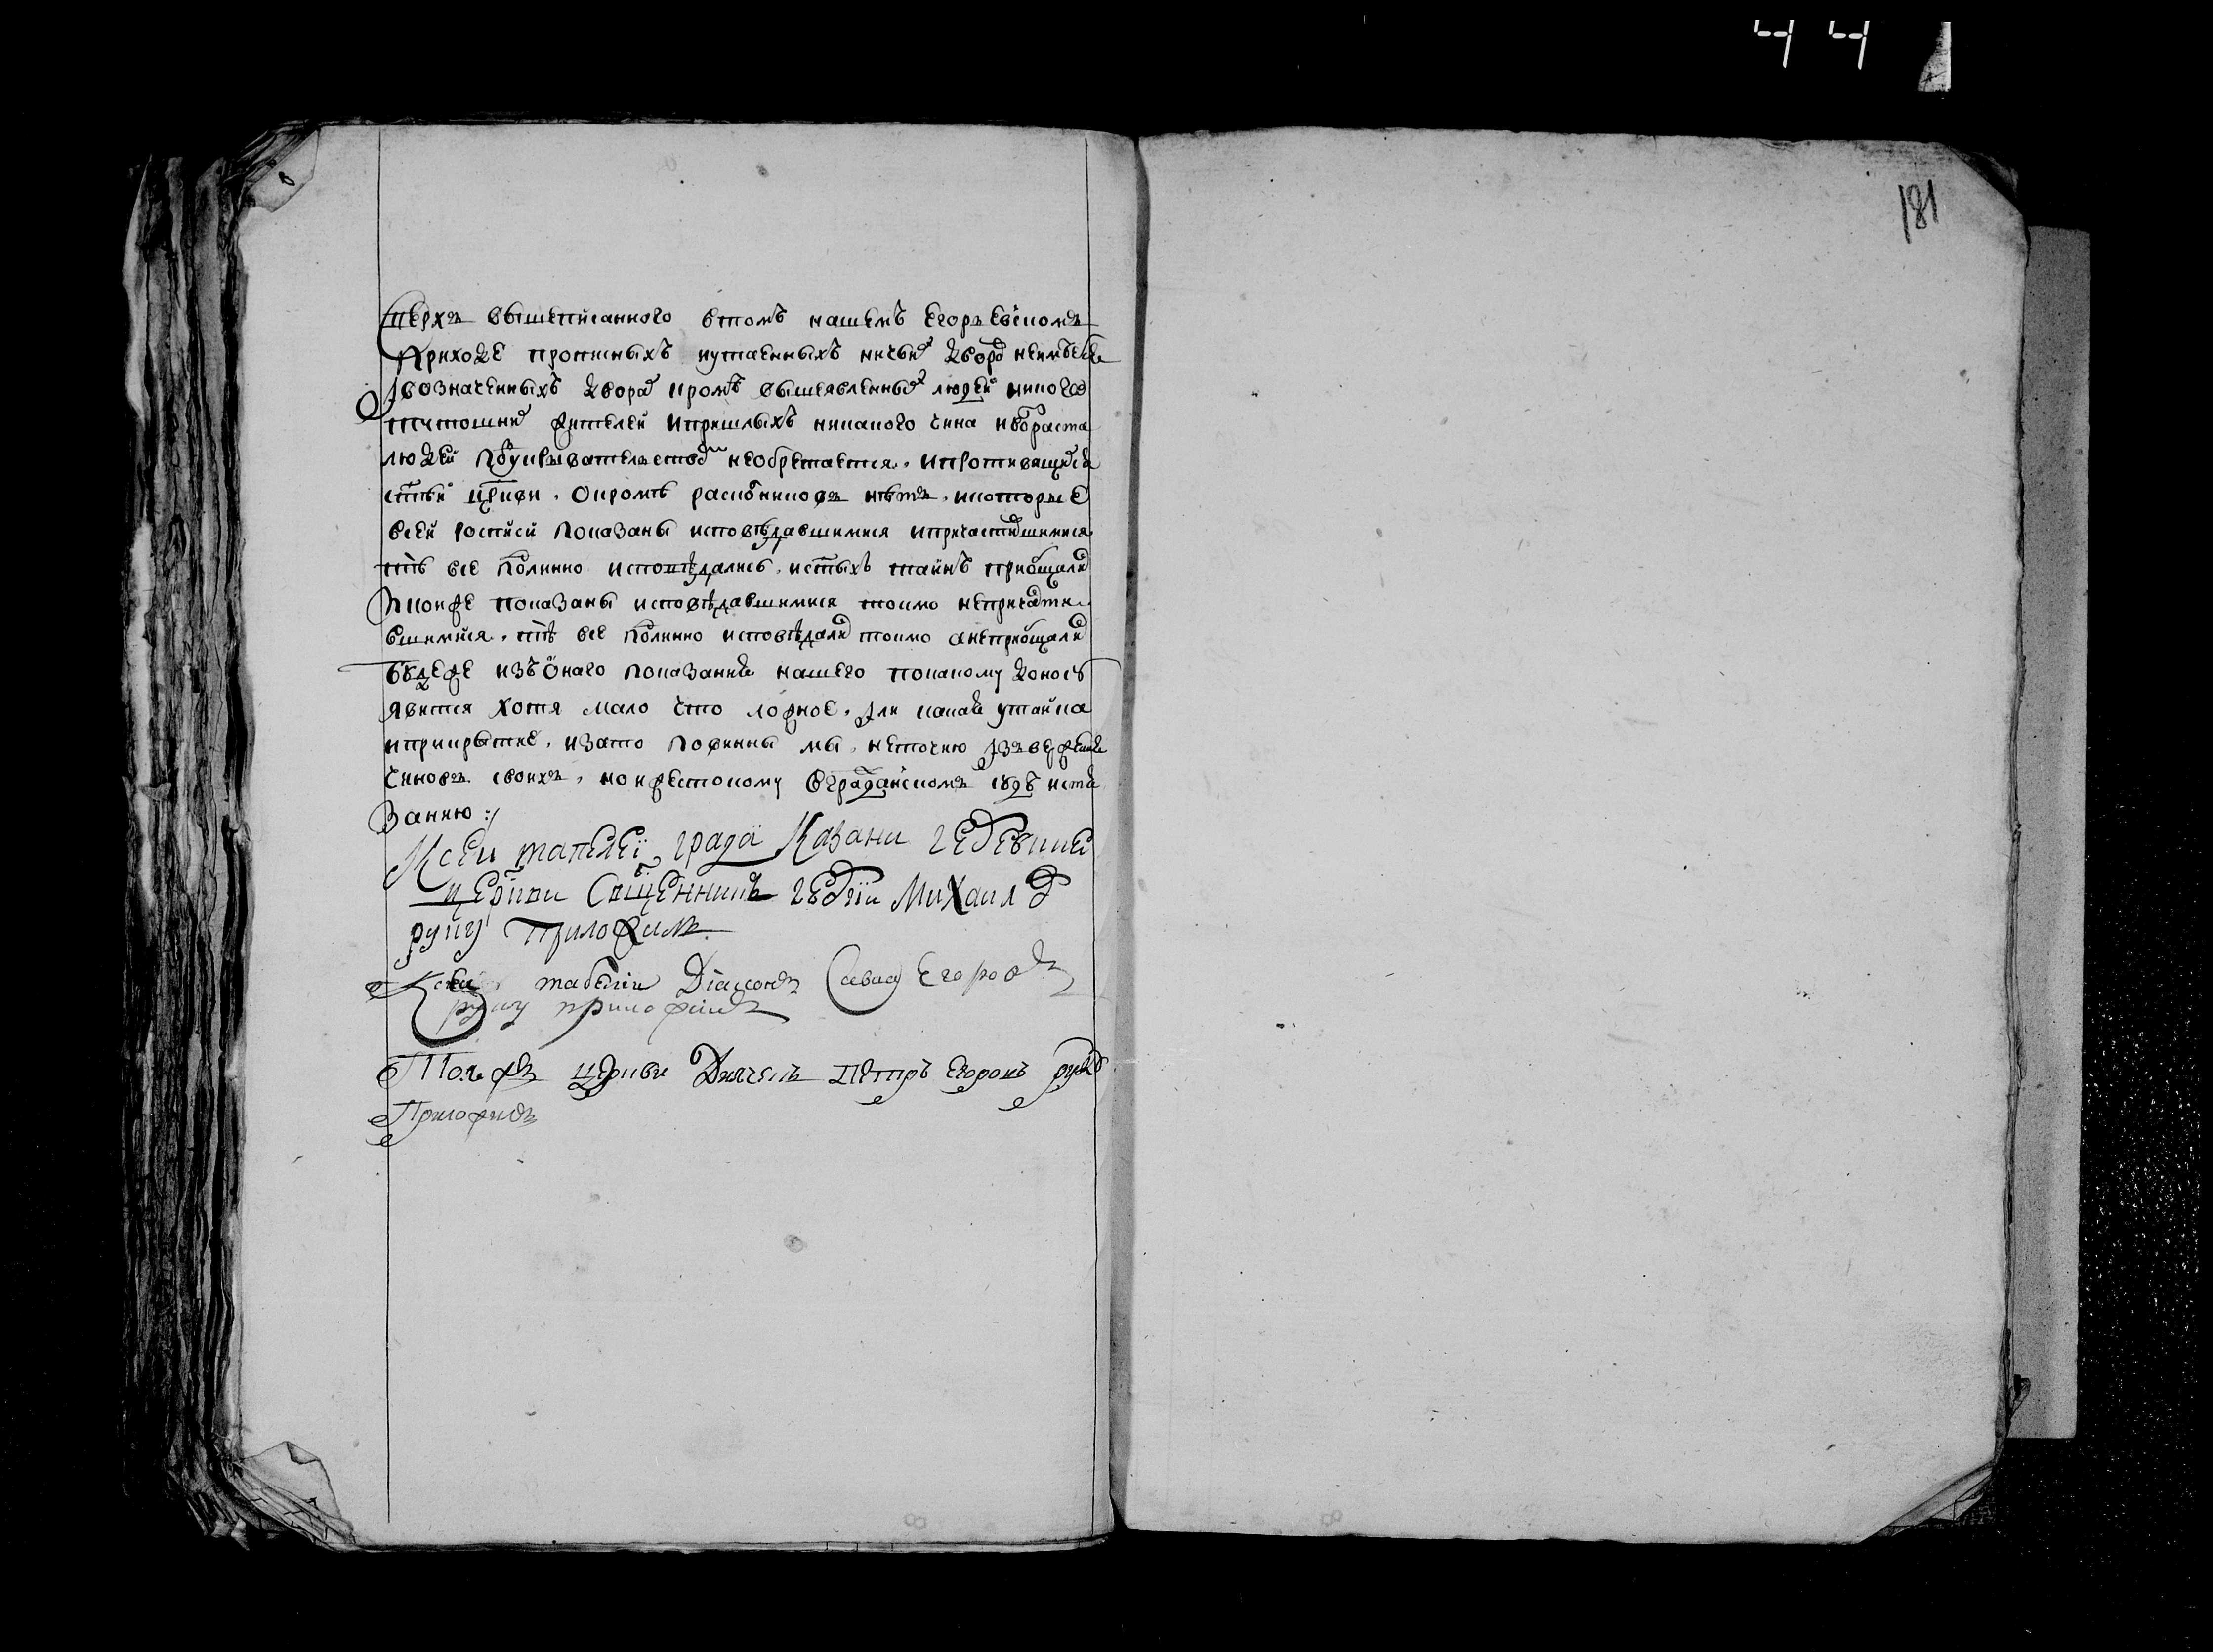 44
181
Сверхъ вышеписанного втомъ нашемъ Егорьевскомъ
приходе прописныхъ иутаенныхъ ничьихъ дворовъ неимѣется
Ивозначенныхъ дворахъ кромѣ вышеявленныхъ людей никого
тутошнихъ жителей ипришлыхъ никакого чина ивозраста
людей необретается. ипротивящихся
стѣй цркви. Окромѣ расколниковъ нѣтъ. икоторые
всей росписи показаны исповѣдавшимися ипричастившимися
тѣ все полинно исповѣдались. истыхъ таинъ приобщались
Акоиже показаны исповѣдавшимися токмо непричасти
вшимися. тѣ все полинно исповѣдались токмо анеприобщались
Будеже изъ Онаго показания нашего покакому доносу
явится хотя мало что ложное. Или какая утайка
иприкрытие. изато повинны мы. неточию Извержение
чиновъ своихъ. но ижестокому Вгражданскомъ судѣ истя
занию :/
Ксеи табелеи града Казани гергевской
церкви Священникъ Михаилов
руку приложилъ
Ксеи табелии Диаконъ Савва Егоровъ
руку приложилъ
Тояжъ церкви Дьячекъ Петръ Егоровъ руку
Приложилъ